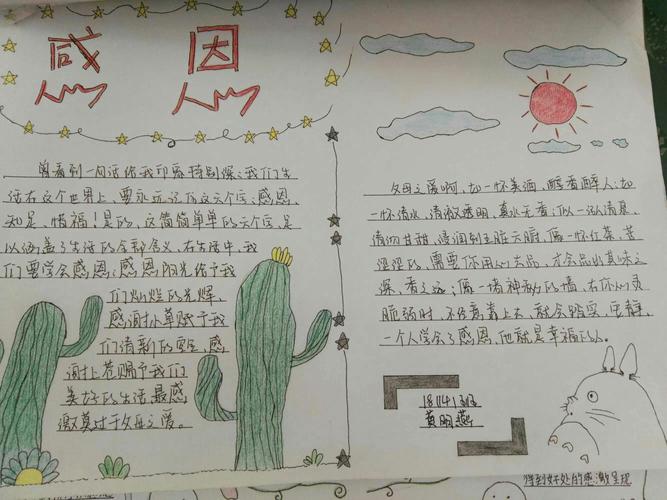 感恩
曾看到一句话给我印象特别深:我们生
活在这个世界上,要永远记住这六个字:感恩、
知足、惜福!是的,这简简单单的六个字,足
以涵盖了生活的全部含义,在生活中,我
们要学会感恩:感恩阳光给予我
们灿烂的光辉,
感谢小草赋予我
们清新的空气,感
谢上苍赐予我们
美好的生活,最感
激莫过于父母之爱。
父母之爱啊,如一怀美酒,醇香醉人;如
一怀清水,清澈透明,真水无香;似一泓清泉,
清沏甘甜,浸润到五脏六腑,像一怀红茶,苦
涩涩的,需要你用心去品,才会品出真味之
深,香之远;像一堵神秘的墙,在你心灵
脆弱时,不经意靠上去,就会踏实,安静,
一个人学会了感恩,他就是幸福的人。
18141班
黄明燕
得到好处的感激呈现